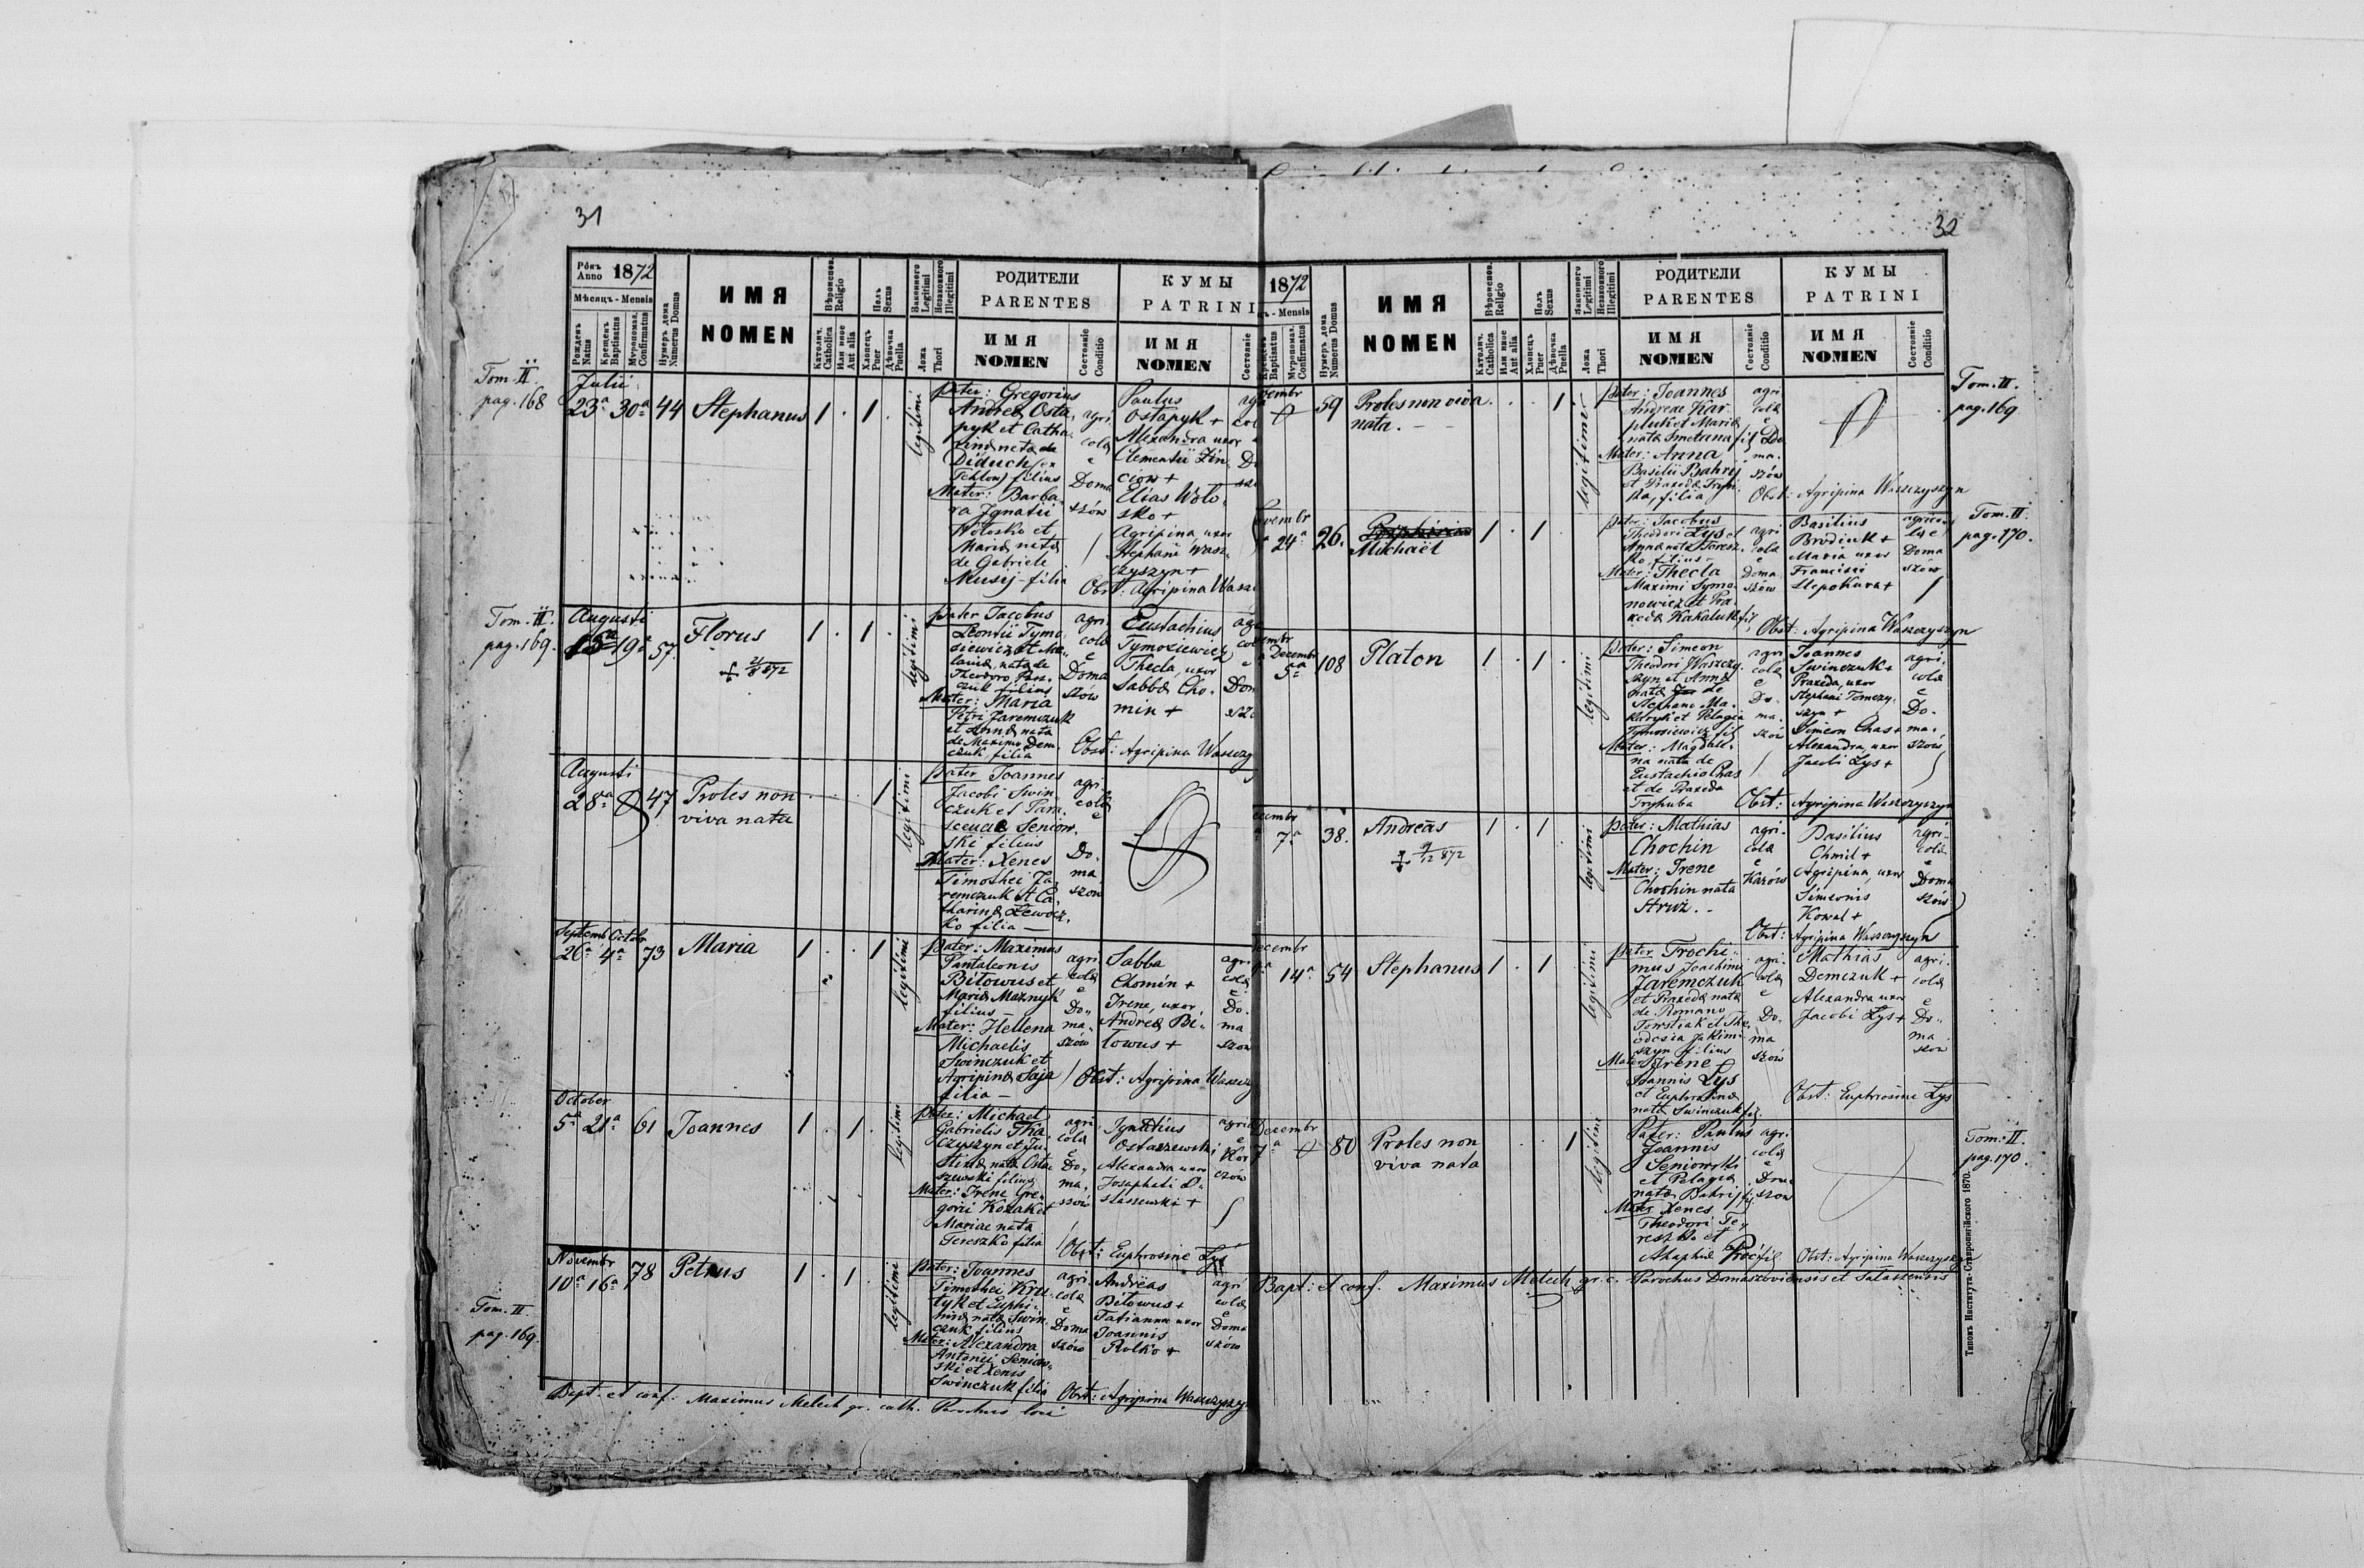 31
Рôкъ Anno 1872
Мѣсяцъ - Mensis
Рожденъ Natus
Крещенъ Baptisatus
Мѵропомаз. Confirmatus
Нумеръ дома Numerus Domus
ИМЯ
NOMEN
Вѣроиспов. Religio
Католич. Catholica
Или иное Aut alia
Полъ Sexus
Хлопецъ Puer
Дѣвочка Puella
Законного Legitimi
Незаконного Illegitimi
Ложа Thori
РОДИТЕЛИ
PARENTES
ИМЯ
NOMEN
Состояніе Conditio
КУМЫ
PATRINI
ИМЯ
NOMEN
Состояніе
Tom. II.
pag. 168
Julii
23a 30a 44 Stephanus 1 . 1 .
legitimi
Pater: Gregorius
Andreæ Osta
pyk et Catha
rinæ nata de
Diduch (ex
Teklow) filius
Mater: Barba
ra Ignatii
Wolosko et
Mariæ nata
de Gabriele
Musij - filia
agri
colæ
e
Doma
szów
Paulus
Ostapyk +
Alexandra uxor
Clementii Zin
ciow +
Elias Woło
sko +
Agripina, uxor
Stephani Wasz
czyszyn +
Obst: Agripina Wasz
Tom. II.
pag. 169.
Augusti
19a 57. Florus 1 . 1 .
† 21/8 872
legitimi
Pater Jacobus
Leontii Tymo
siewicz et Me
laniæ, nata de
Theodoro
czuk filius
Mater: Maria
Petri Jaremczuk
et Annæ nata
de Maximo Dem
czuk filia
agri
colæ
e
Doma
szów
Eustachius
Tymosiewicz
Thecla, uxor
Sabbæ Cho
min +
Obst: Agripina Waszczy
Augusti
28a 47 Proles non
viva nata
. . . 1
legitimi
Pater Joannes
Jacobi Swin
czuk et Para
scevae Seniow
ski filius
Mater: Xenes
Timothei Ja
remczuk et Ca
tharinæ Lewocz
ko filia —
agri
colæ
e
Do
ma
szow
Septemb Octobr
26a 4a 73 Maria 1 . . 1
legitimi
Pater: Maximus
Pantaleonis
Biłowus et
Mariæ Maznyk
filius —
Mater: Hellena
Michaelis
Swinczuk et
Agripinæ Saja
filia —
agri
colæ
e
Do
ma
szów
Sabba
Chomin +
Irene, uxor
Andreæ Bi
łowus +
agri
colæ
e
Do
ma
szow
Obst: Agripina Waszczy
October
5a 21a 61 Joannes 1 . 1 .
legitimi
Pater: Michael
Gabrielis Tka
czyszyn et Ju
stinæ nata Osta
szewski filius
Mater: Irene Gre
gorii Kozak et
Mariae nata
Tereszko filia
agri
colæ
e
Do
ma
szów
Ignatius
Ostaszewski
Alexandra uxor
Josaphati O
staszewski +
Obst: Euphrosine Łys
Tom. II.
pag. 169.
Novembr
10a 16a 78 Petrus 1 . 1 .
legitimi
Pater: Joannes
Timothei Kru
tyk et Euphi
minæ nata Swin
czuk filius
Mater: Alexandra
Antonii Seniow
ski et Xenis
Swinczuk filia
agri
colæ
e
Doma
szów
Andreas
Biłowus +
Tatianna uxor
Joannis
Rolko +
agri
colæ
e
Doma
szów
Obst: Agripina Waszczyszy
Bapt. et conf. Maximus Melech gr. cath. Parochus loci
32
1872
- Mensis
Крещенъ Baptisatus
Мѵропомаз. Confirmatus
Нумеръ дома Numerus Domus
ИМЯ
NOMEN
Вѣроиспов. Religio
Католич. Catholica
Или иное Aut alia
Полъ Sexus
Хлопецъ Puer
Дѣвочка Puella
Законного Legitimi
Незаконного Illegitimi
Ложа Thori
РОДИТЕЛИ
PARENTES
ИМЯ
NOMEN
Состояніе Conditio
КУМЫ
PATRINI
ИМЯ
NOMEN
Состояніе Conditio
Tom. II.
pag. 169
59 Proles non viva
nata. — —
. . . 1
legitimi
Pater: Joannes
Andreae Kar
pluk et Mariæ
nata Smetana fil
Mater: Anna
Basilii Bahrij
et Praxedæ
filia
agri
colæ
e
Do
ma
szów
Obst: Agripina Waszczyszyn
Tom. II.
pag. 170.
vembr
24a 26. Michaël 1 . 1 .
Pater: Jacobus
Theodori Łys et
Annæ nata Teresz
ko filius —
Mater: Thecla
Maximi Symo
nowicz et Pra
xedæ Kakaluk fil.
agri
colæ
e
Doma
szów
Basilius
Brodiuk +
Maria uxor
Francisci
Slepokura +
agricol
e
Doma
szów
Obst: Agripina Waszczyszyn
Decembr
5a 108 Platon 1 . 1 .
legitimi
Pater: Simeon
Theodori Waszczy
szyn et Annæ
nata de
Stephano Ma
kutryk et Pelagia
Tymosiewicz fil
Mater: Magdale
na nata de
Eustachio Chas
et de Praxeda
Tryhuba
agri
colæ
e
Do
ma
szów
Joannes
Swinczuk +
Praxeda, uxor
Stephani Tomczy
szyn +
Simeon Chas +
Alexandra, uxor
Jacobi Łys +
agri
colæ
e
Do
ma
szów
Obst: Agripina Waszczyszyn
ecembr
7a 38. Andreas 1 . 1 .
† 9/12 872
legitimi
Pater: Mathias
Chochin
Mater: Irene
Chochin nata
Struż. —
agri
colæ
e
Karów
Basilius
Chmil +
Agripina, uxor
Simeonis
Kowal +
agri
colæ
e
Doma
szów
Obst: Agripina Waszczyszyn
ecembr
14a 54 Stephanus 1 . 1 .
legitimi
Pater: Trochi
mus Joachimi
Jaremczuk
et Praxedæ nata
de Romano
et The
odosia Jakimi
szyn filius
Mater: Irene
Joannis Łys
et Euphrosinæ
nata Swinczuk fil.
agri
colæ
e
Do
ma
szów
Mathias
Demczuk +
Alexandra uxor
Jacobi Łys +
agri
colæ
e
Do
ma
szow
Obst: Euphrosine Łys
Tom. II.
pag. 170.
Decembr
7a 80 Proles non
viva nata
. . 1
legitimi
Pater: Paulus
Joannis
Seniowski
et Pelagiæ
nata Bahrij fil.
Mater Xenes
Theodori Te
reszko et
Ahaphiæ fil.
agri
colæ
e
Doma
szow
Obst: Agripina Waszczyszyn
Bapt: et conf. Maximus Melech gr. c. Parochus Domaszoviensis et Salaszensis
Типомъ Института Ставропигійского 1870.